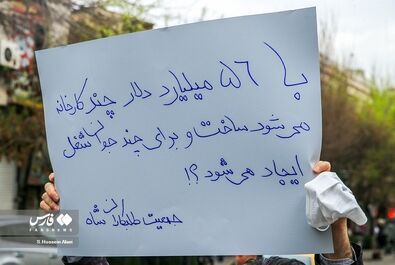 با ۵۶ میلیارد دلار چند کارخانه
می‌شود ساخت و برای چند جوان شغل
ایجاد می‌شود؟!
جمعیت طلبکاران شاه
فارس
FARSNEWS
Hossein Alavi